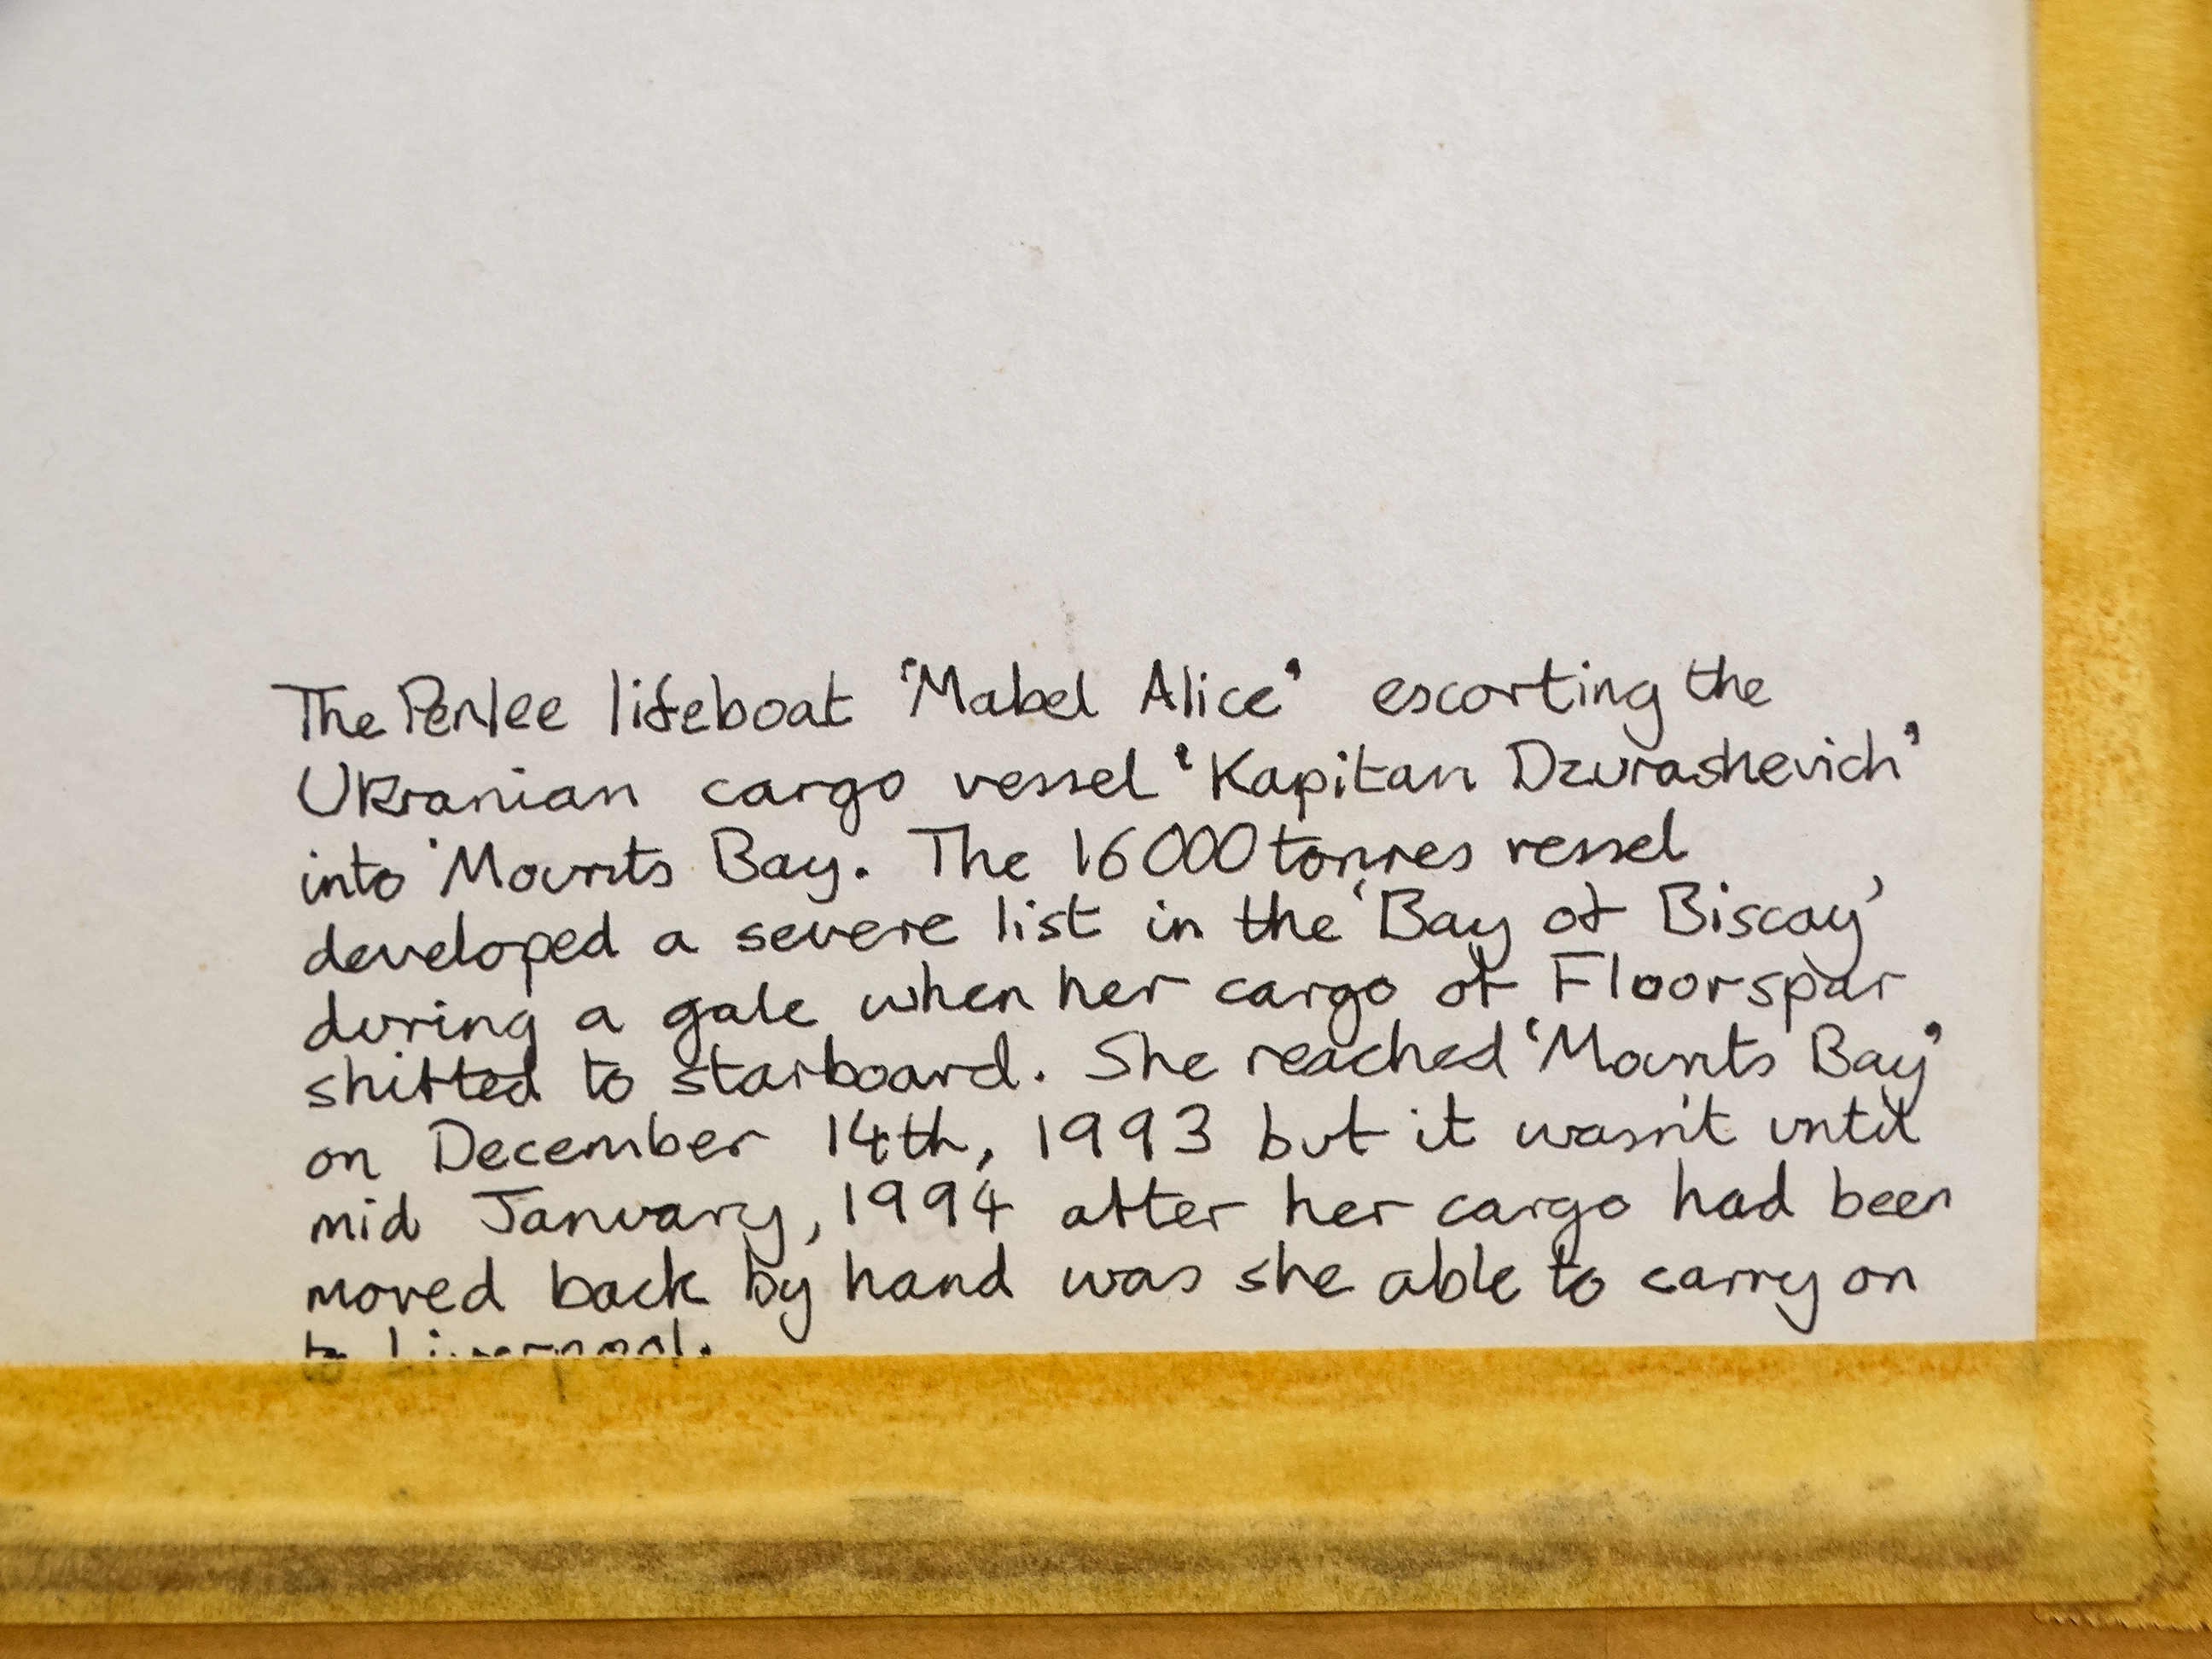 The Penlee lifeboat 'Mabel Alice' escorting the
Ukranian cargo vessel 'Kapitan Dzurashevich'
into 'Mounts Bay. The 16000 tonnes vessel
developed a severe list in the 'Bay of Biscay'
during a gale when her cargo of Floorspar
shifted to starboard. She reached 'Mounts Bay'
on December 14th, 1993 but it wasn't until
mid January, 1994 after her cargo had been
moved back by hand was she able to carry on
to Liverpool.